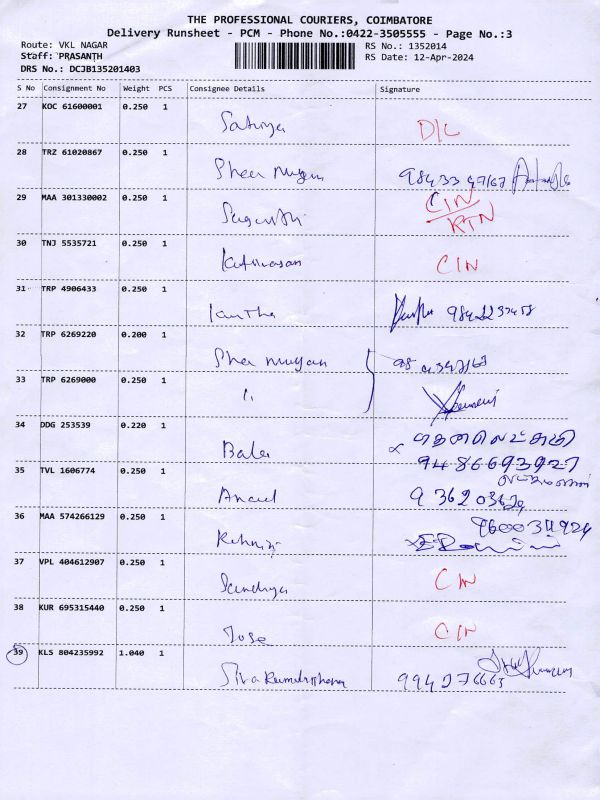 THE PROFESSIONAL COURIERS, COIMBATORE
Delivery Runsheet - PCM - Phone No.:0422-3505555 - Page No.:3
Route: VKL NAGAR
RS No.: 1352014
Staff: PRASANTH
RS Date: 12-Apr-2024
DRS No.: DCJB135201403
S No Consignment No Weight PCS Consignee Details Signature
27 KOC 61600001 0.250 1
Sathya D/L
28 TRZ 61020867 0.250 1
29 MAA 301330002 0.250 1
CIN
RTN
30 TNJ 5535721 0.250 1
CIN
31 TRP 4906433 0.250 1
Kantha
32 TRP 6269220 0.200 1
33 TRP 6269000 0.250 1
"
34 DDG 253539 0.220 1
Bala
9486693927
35 TVL 1606774 0.250 1
Anand
36 MAA 574266129 0.250 1
37 VPL 404612907 0.250 1
Sandhya CIN
38 KUR 695315440 0.250 1
Jose CIN
39 KLS 804235992 1.040 1